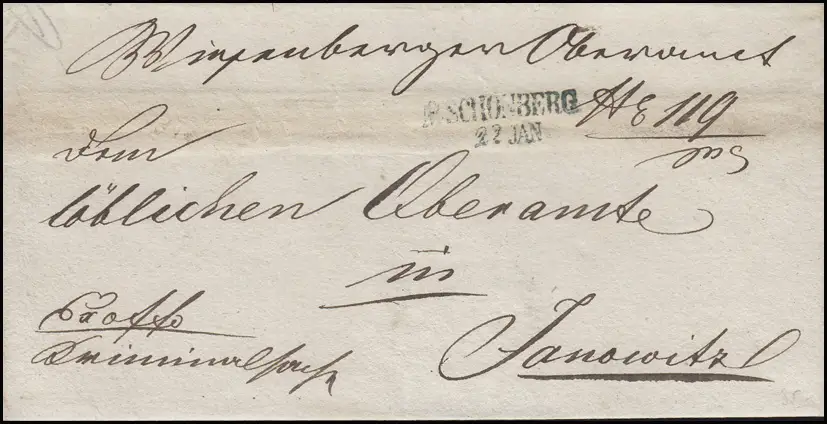 Wiesenberger Oberamt
SCHÖNBERG
22 JAN
No 119
Dem
löblichen Oberamte
in
Ex offo
Kriminalsache
Janowitz